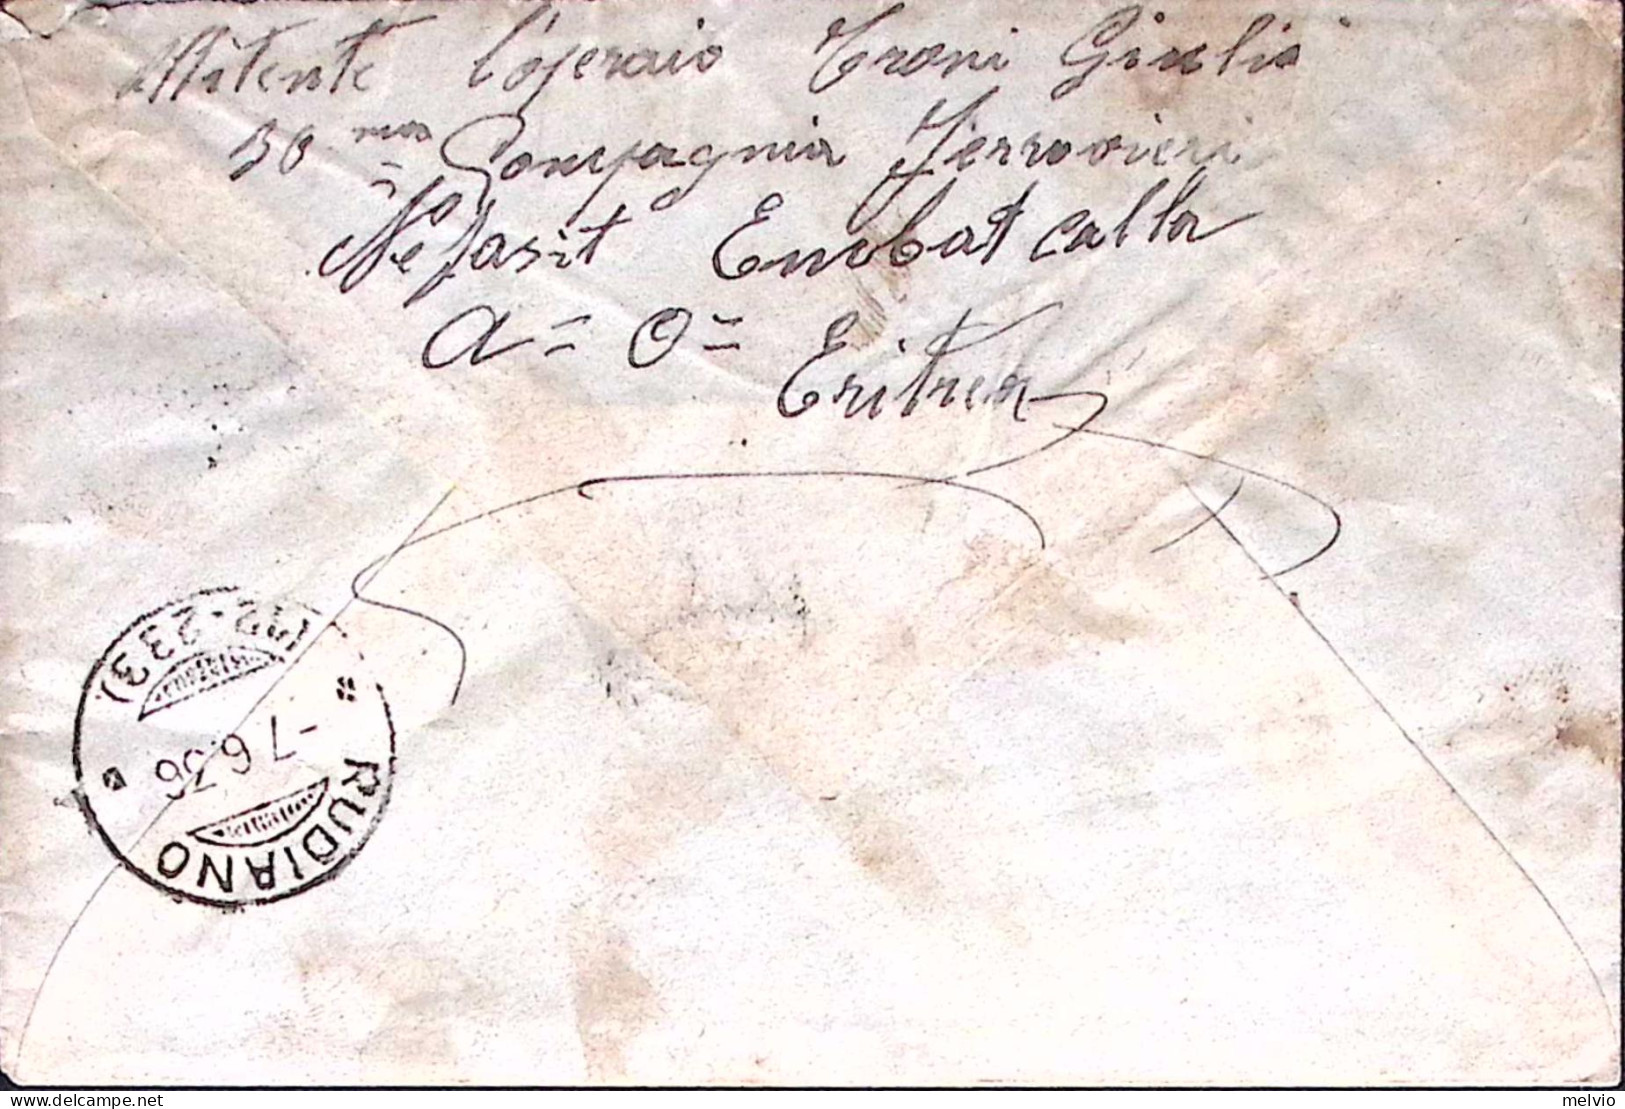 Mitente l'operaio Troni Giulio
30 ma Compagnia Ferrovieri
Nefasit Embat calla
A = O =
Eritrea
RUDIANO
- 7.6.36
melvio